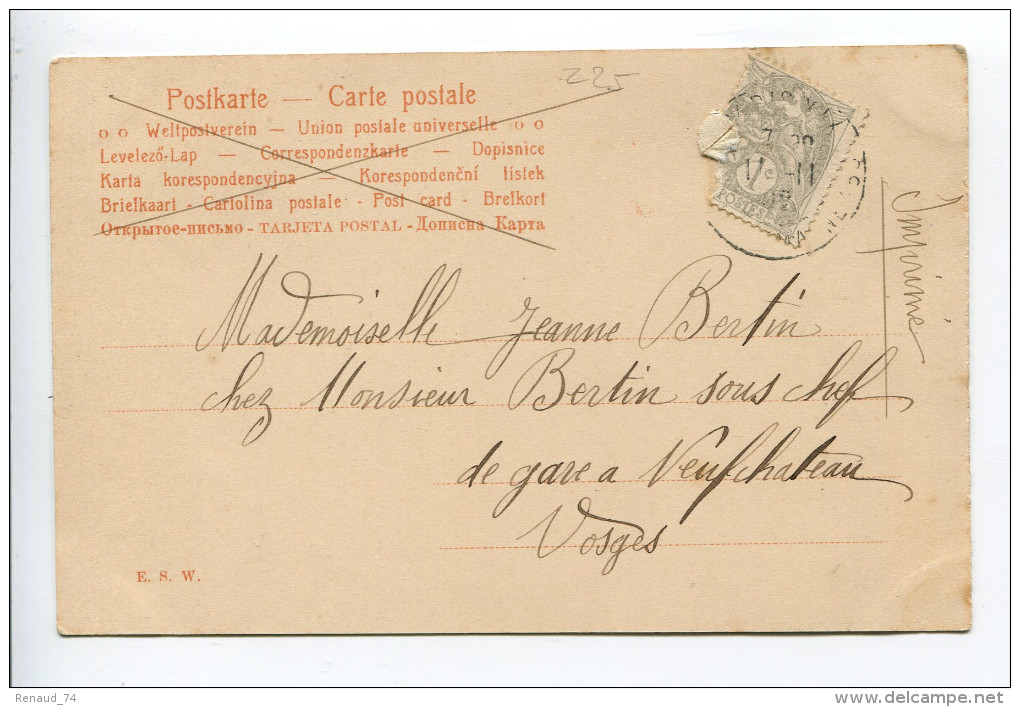 225
Postkarte — Carte postale
o o Weltpostverein — Union postale universelle o o
Levelező-Lap — Correspondenzkarte — Dopisnice
Karta korespondencyjna — Korespondenční lístek
Briefkaart - Cartolina postale - Post card - Brefkort
Открытое-письмо - TARJETA POSTAL - Дописна Карта
POSTES
17 -11
Imprimé
Mademoiselle Jeanne Bertin
chez Monsieur Bertin sous chef
de gare a Neufchateau
Vosges
E. S. W.
Renaud_74
www.delcampe.net